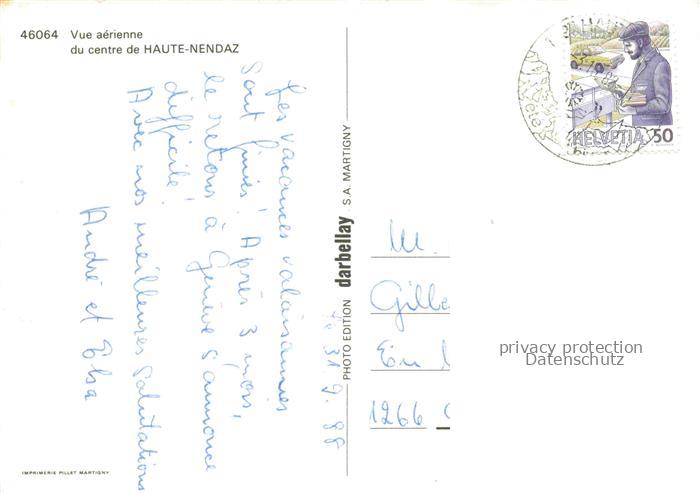 46064 Vue aérienne
du centre de HAUTE-NENDAZ
Les vacances valaisannes
sont finies! Après 3 mois,
le retour à Genève s'annonce
difficile!
Avec nos meilleures salutations
André et Elsa
31 9. 88
PHOTO EDITION darbellay S.A. MARTIGNY
HELVETIA 50
M.
Gille
En
1266
privacy protection
Datenschutz
IMPRIMERIE PILLET MARTIGNY